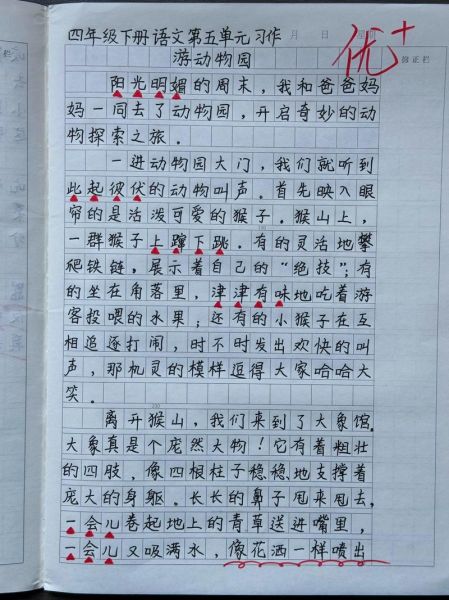 四年级下册语文第五单元习作
月 日
优+
游动物园
修正栏
阳光明媚的周末，我和爸爸妈
妈一同去了动物园，开启奇妙的动
物探索之旅。
一进动物园大门，我们就听到
此起彼伏的动物叫声。首先映入眼
帘的是活泼可爱的猴子。猴山上，
一群猴子上蹿下跳。有的灵活地攀
爬铁链，展示着自己的“绝技”；有
的坐在角落里，津津有味地吃着游
客投喂的水果；还有的小猴子在互
相追逐打闹，时不时发出欢快的叫
声，那机灵的模样逗得大家哈哈大
笑。
离开猴山，我们来到了大象馆。
大象真是个庞然大物！它有着粗壮
的四肢，像四根柱子稳稳地支撑着
庞大的身躯。长长的鼻子甩来甩去，
一会儿卷起地上的青草送进嘴里，
一会儿又吸满水，像花洒一样喷出